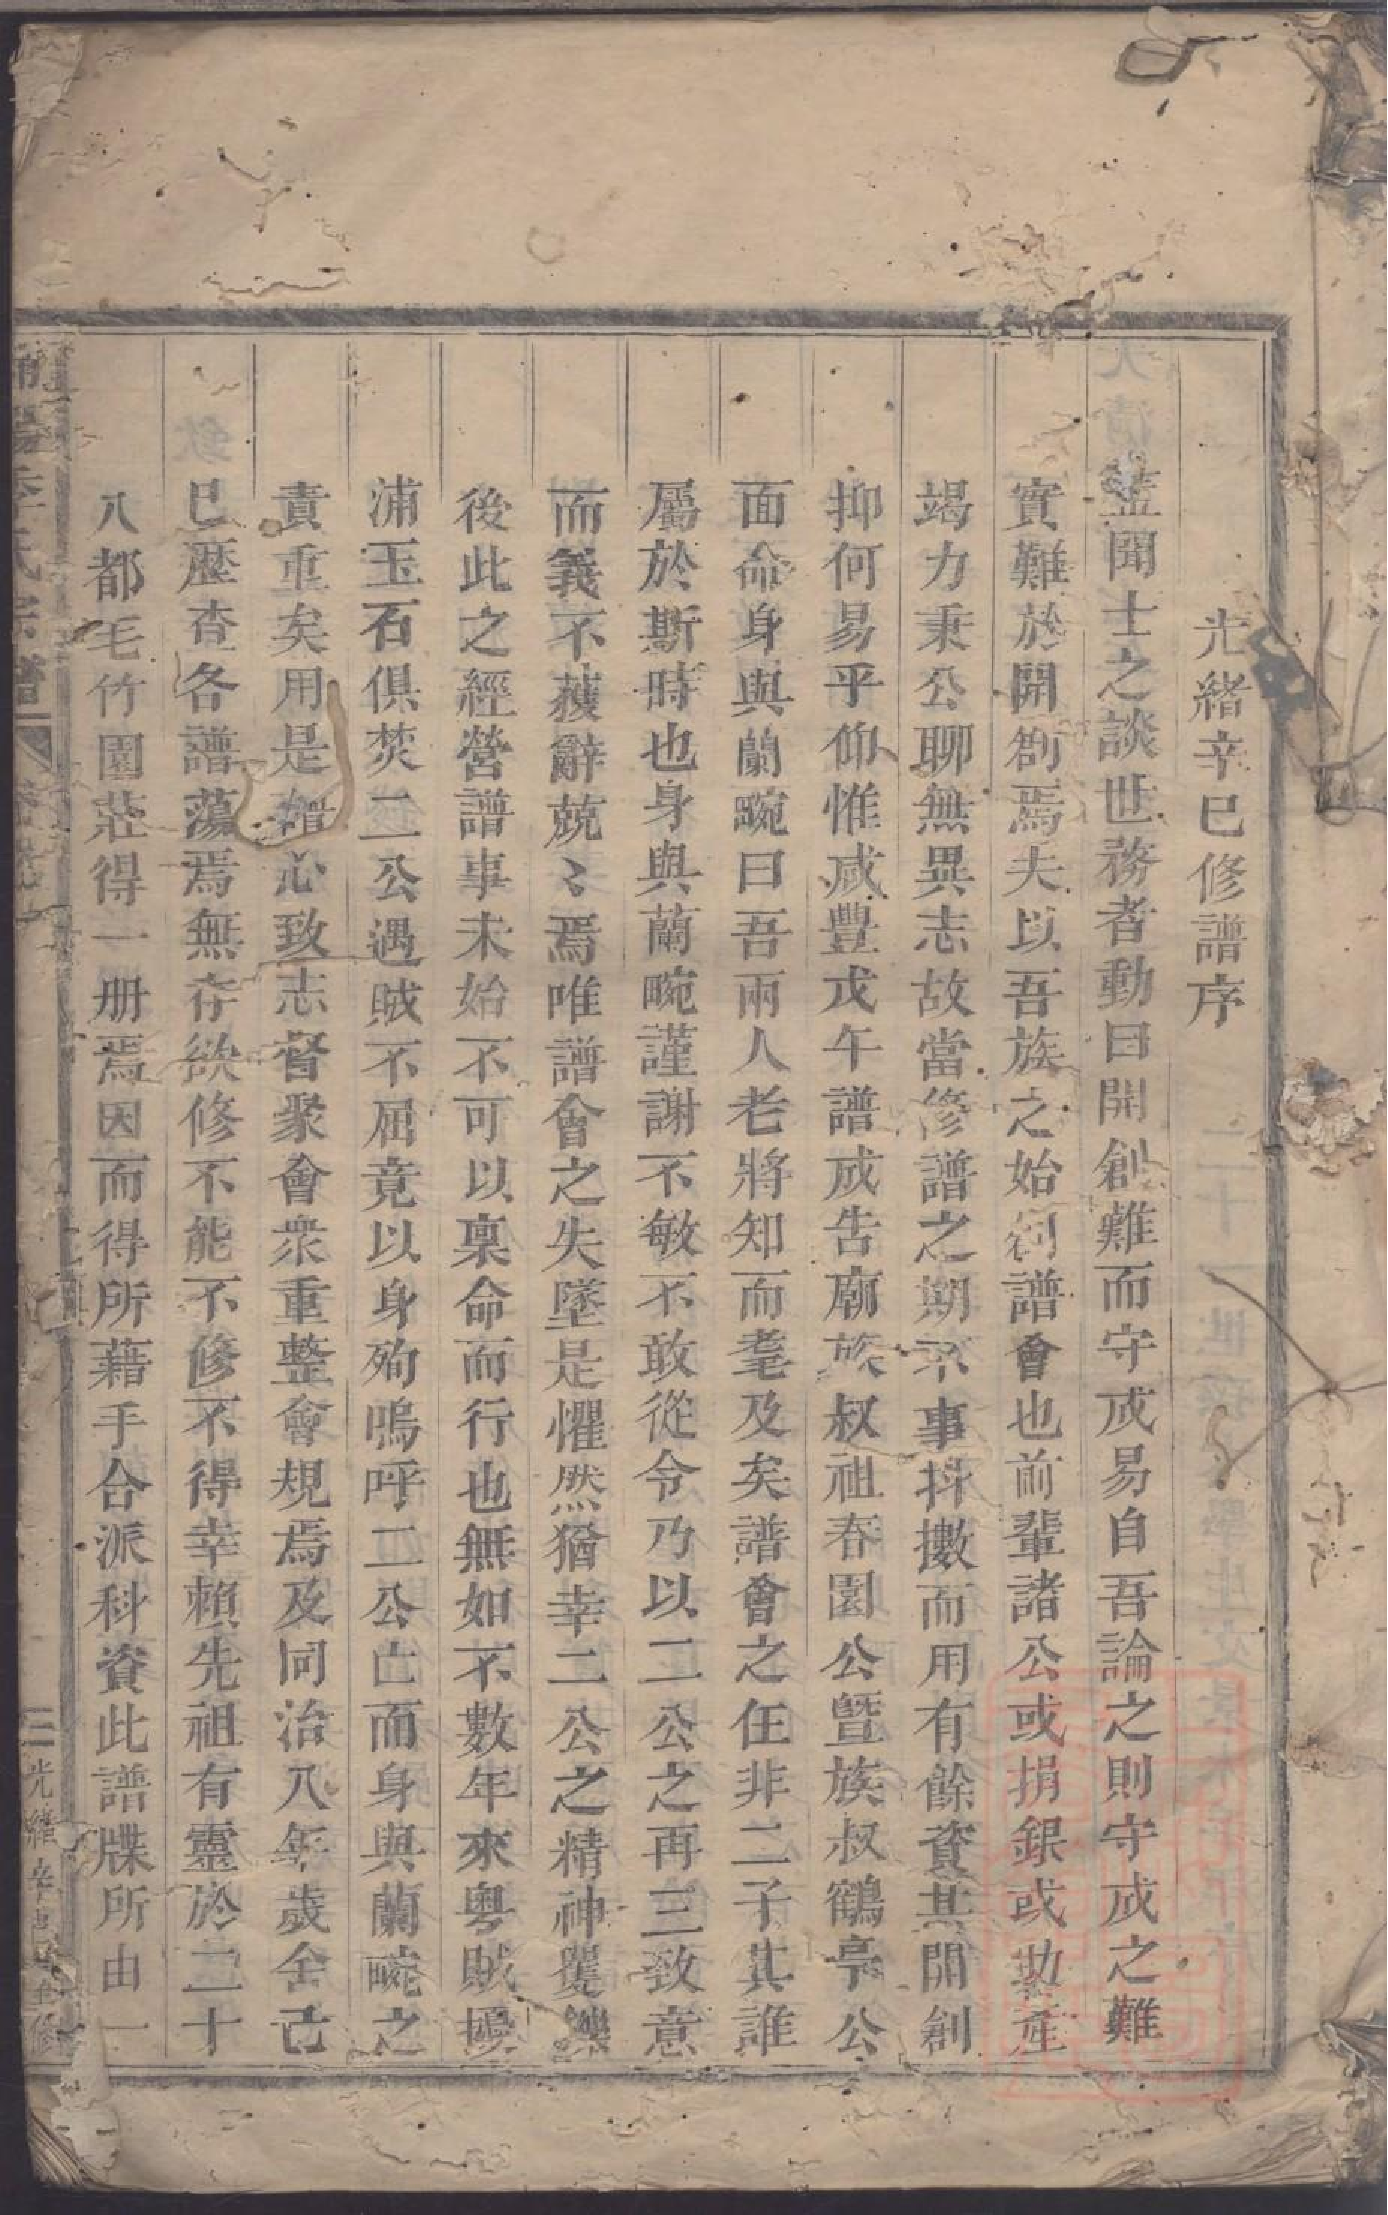 光緒辛巳修譜序
蓋聞士之談世務者動曰開創難而守成易自吾論之則守成之難
實難於開創焉夫以吾族之始創譜會也前輩諸公或捐銀或助產
竭力秉公聊無異志故當修譜之期不事抖擻而用有餘資其開創
抑何易乎仰惟咸豐戊午譜成告廟族叔祖春園公暨族叔鶴亭公
面命身與蘭畹曰吾兩人老將知而耄及矣譜會之任非二子其誰
屬於斯時也身與蘭畹謹謝不敏不敢從令乃以二公之再三致意
而義不獲辭兢〻焉唯譜會之失墜是懼然猶幸二公之精神矍鑠
後此之經營譜事未始不可以稟命而行也無如不數年來粵賊擾
浦玉石俱焚二公遇賊不屈竟以身殉嗚呼二公亡而身與蘭畹之
責重矣用是 心致志督聚會衆重整會規焉及同治八年歲舍己
巳歷查各譜蕩焉無存欲修不能不修不得幸賴先祖有靈於二十
八都毛竹園莊得一册焉因而得所藉手合派科資此譜牒所由一
氏宗譜
三
光緒辛巳重修